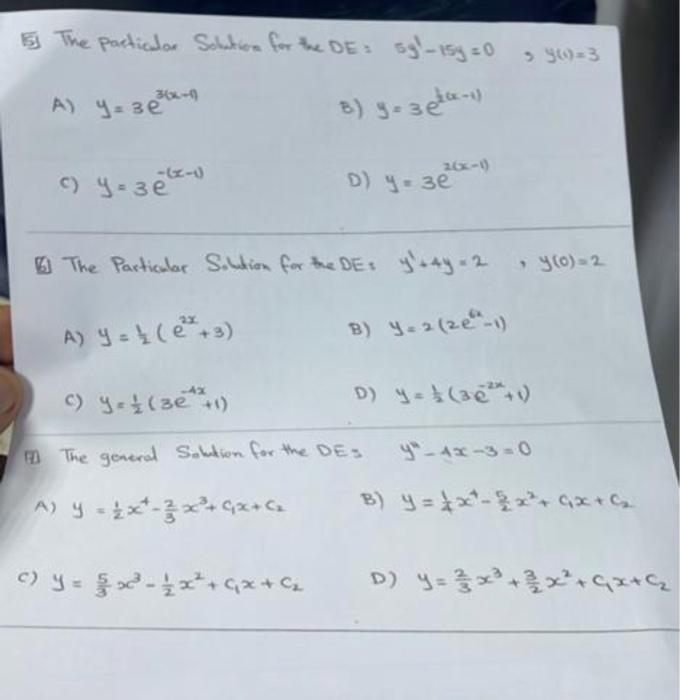 5 The particular Solution for the DE: 5y' - 15y = 0 , y(1) = 3
A) y = 3e^{3(x-1)} B) y = 3e^{½(x-1)}
C) y = 3e^{-(x-1)} D) y = 3e^{2(x-1)}
6 The Particular Solution for the DE: y' + 4y = 2 , y(0) = 2
A) y = ½(e^{2x} + 3) B) y = 2(2e^{6x} - 1)
C) y = ½(3e^{-4x} + 1) D) y = ½(3e^{-2x} + 1)
7 The general Solution for the DE: y'' - 4x - 3 = 0
A) y = ½x⁴ - ⅔x³ + C₁x + C₂ B) y = ¼x⁴ - 5/2x² + C₁x + C₂
C) y = 5/3x³ - ½x² + C₁x + C₂ D) y = ⅔x³ + 3/2x² + C₁x + C₂